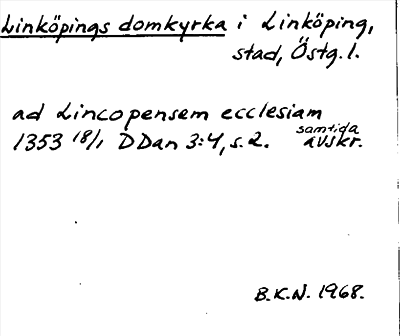 Linköpings domkyrka i Linköping,
stad, Östg. l.
ad Lincopensem ecclesiam
1353 18/1 DDan 3:4, s. 2. samtida avskr.
B.K.N. 1968.